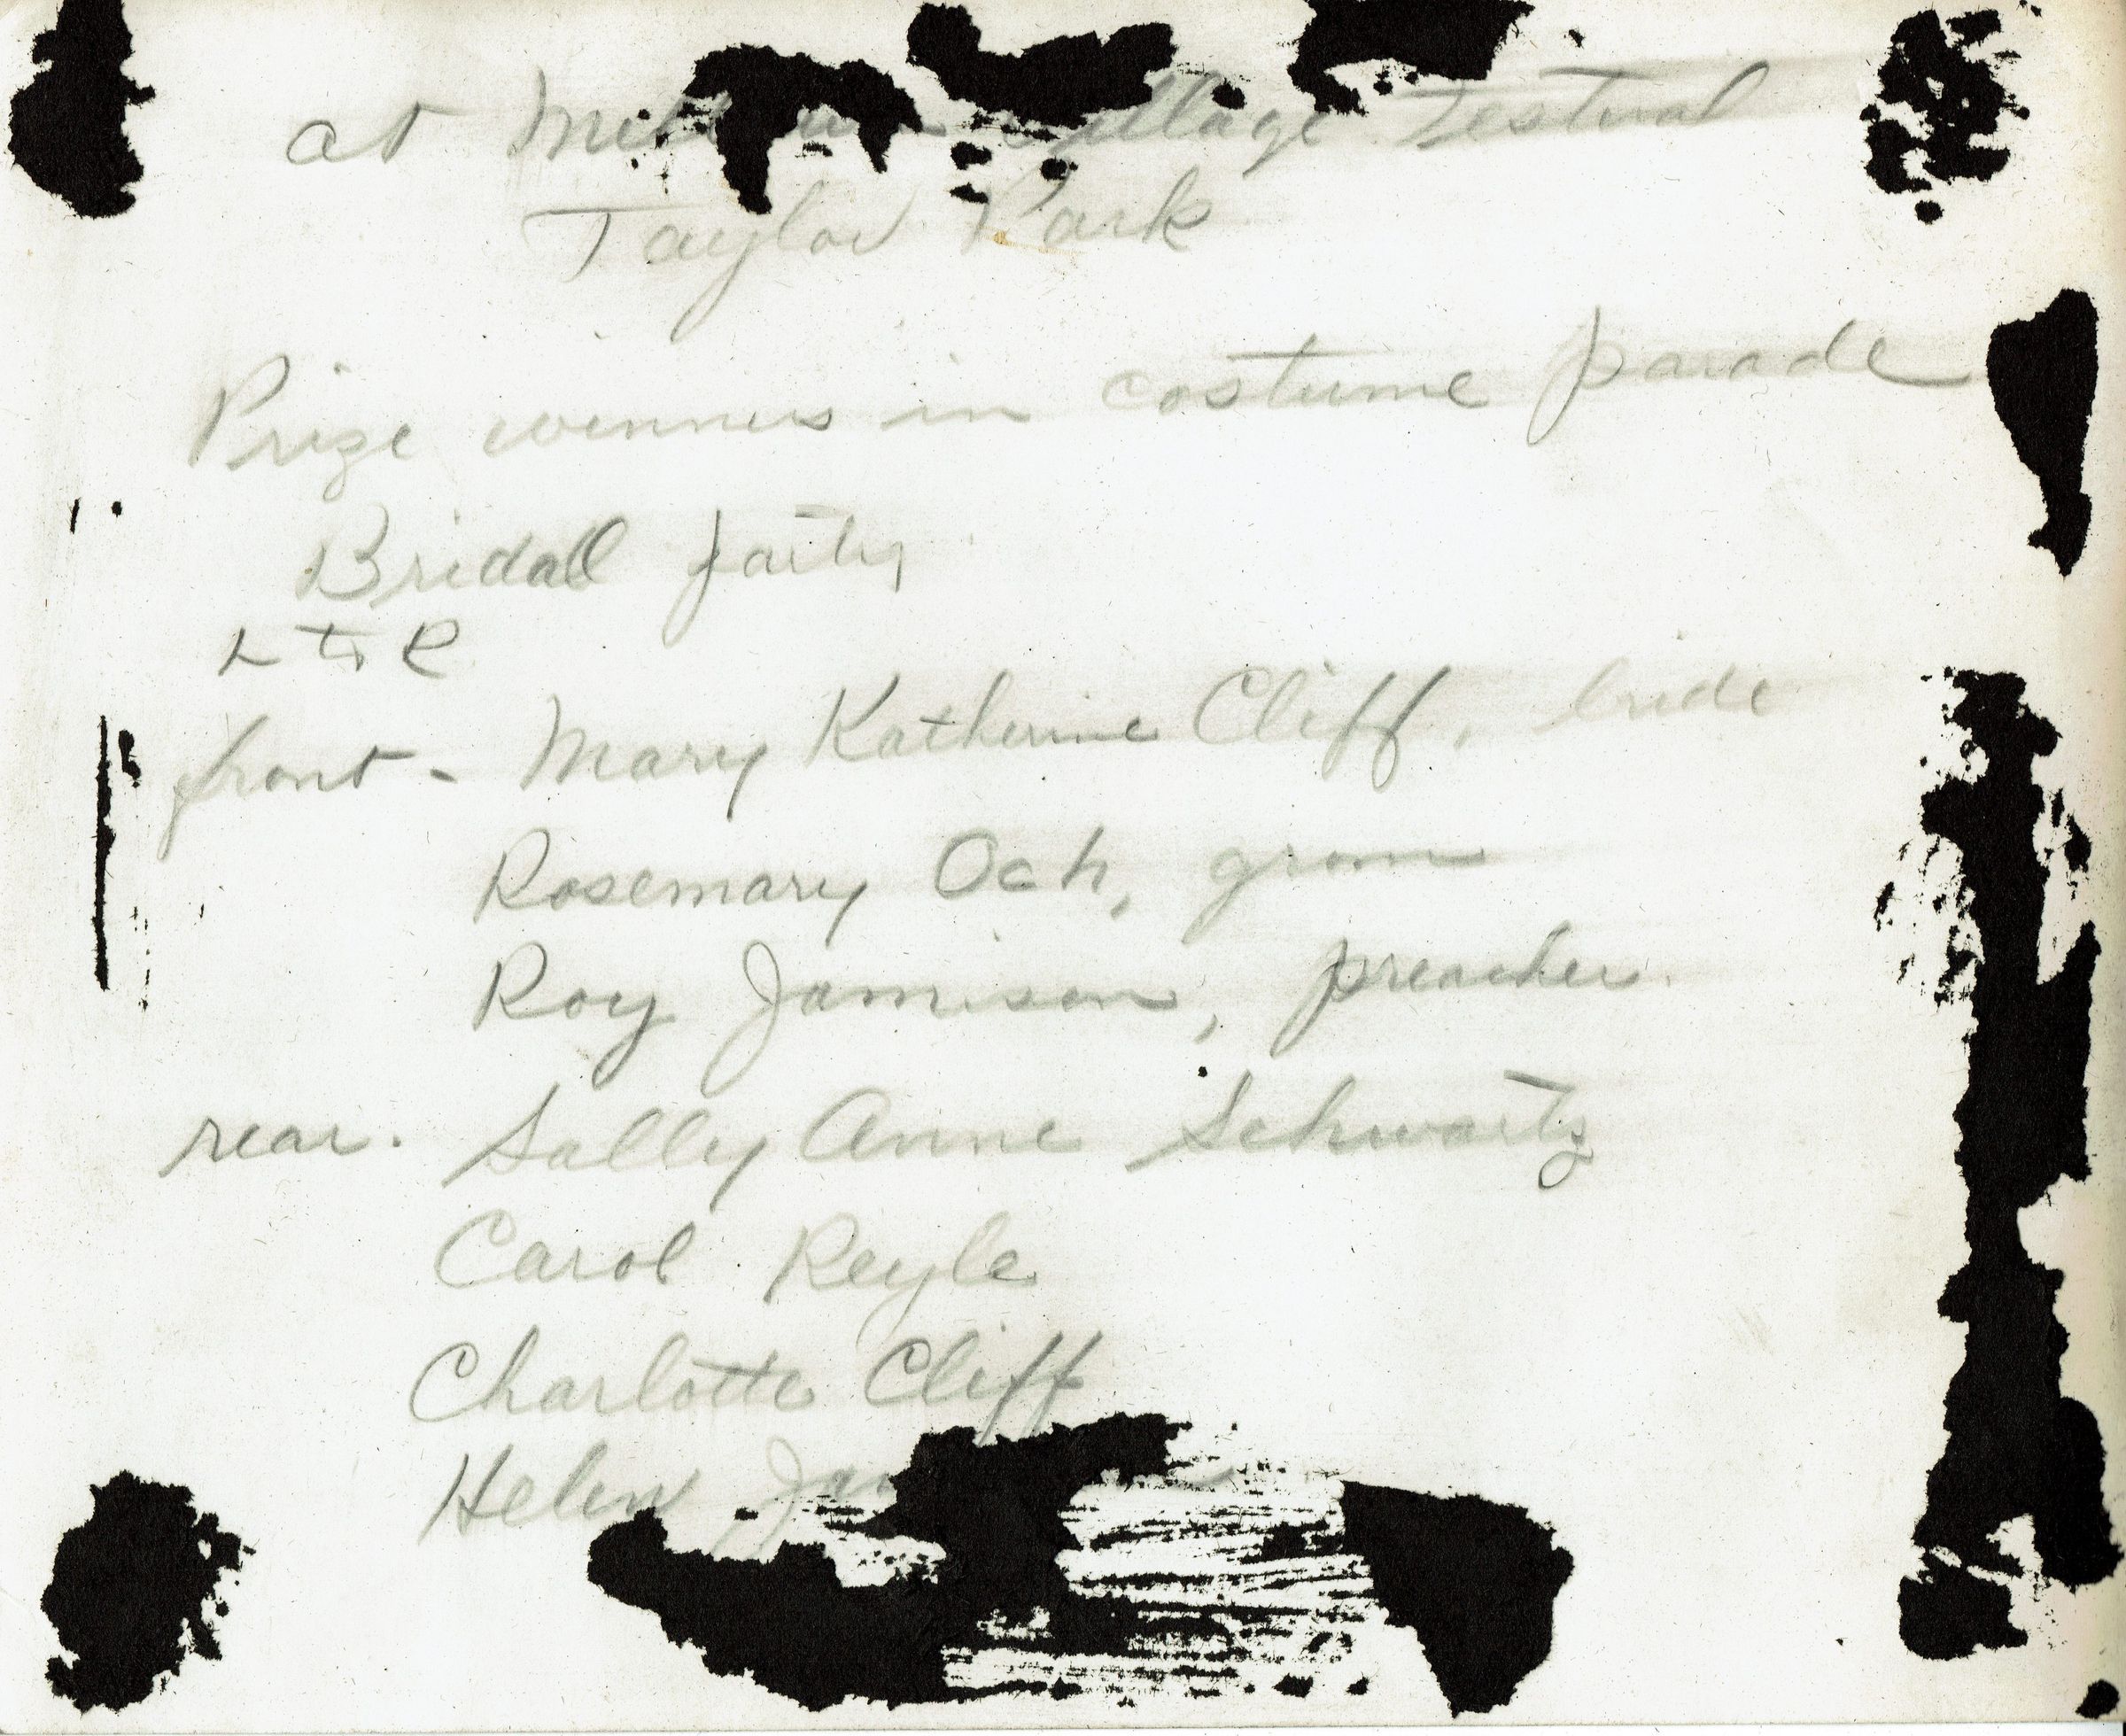 at Village Festival
Taylor Park
Prize winners in costume parade
Bridal party
L to R
front - Mary Katherine Cliff, bride
Rosemary Och, groom
Roy Jamison, preacher
rear. Sally Anne Schwartz
Carol Reyle
Charlotte Cliff
Helen